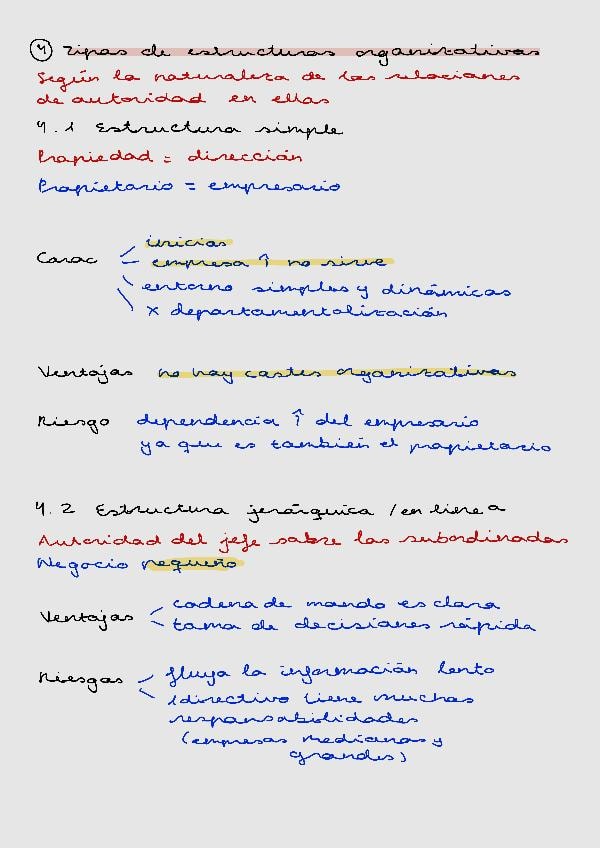 4 Tipos de estructuras organizativas
Según la naturaleza de las relaciones
de autoridad en ellas
4.1 Estructura simple
Propiedad = dirección
Propietario = empresario
inicios
Carac - empresa ↑ no sirve
entorno simples y dinámicos
x departamentalización
Ventajas no hay costes organizativos
Riesgo dependencia ↑ del empresario
ya que es también el propietario
4.2 Estructura jerárquica / en linea
Autoridad del jefe sobre los subordinados
Negocio pequeño
cadena de mando es clara
Ventajas
toma de decisiones rápida
fluya la información lento
Riesgos
1 directivo tiene muchas
responsabilidades
(empresas medianas y
grandes)